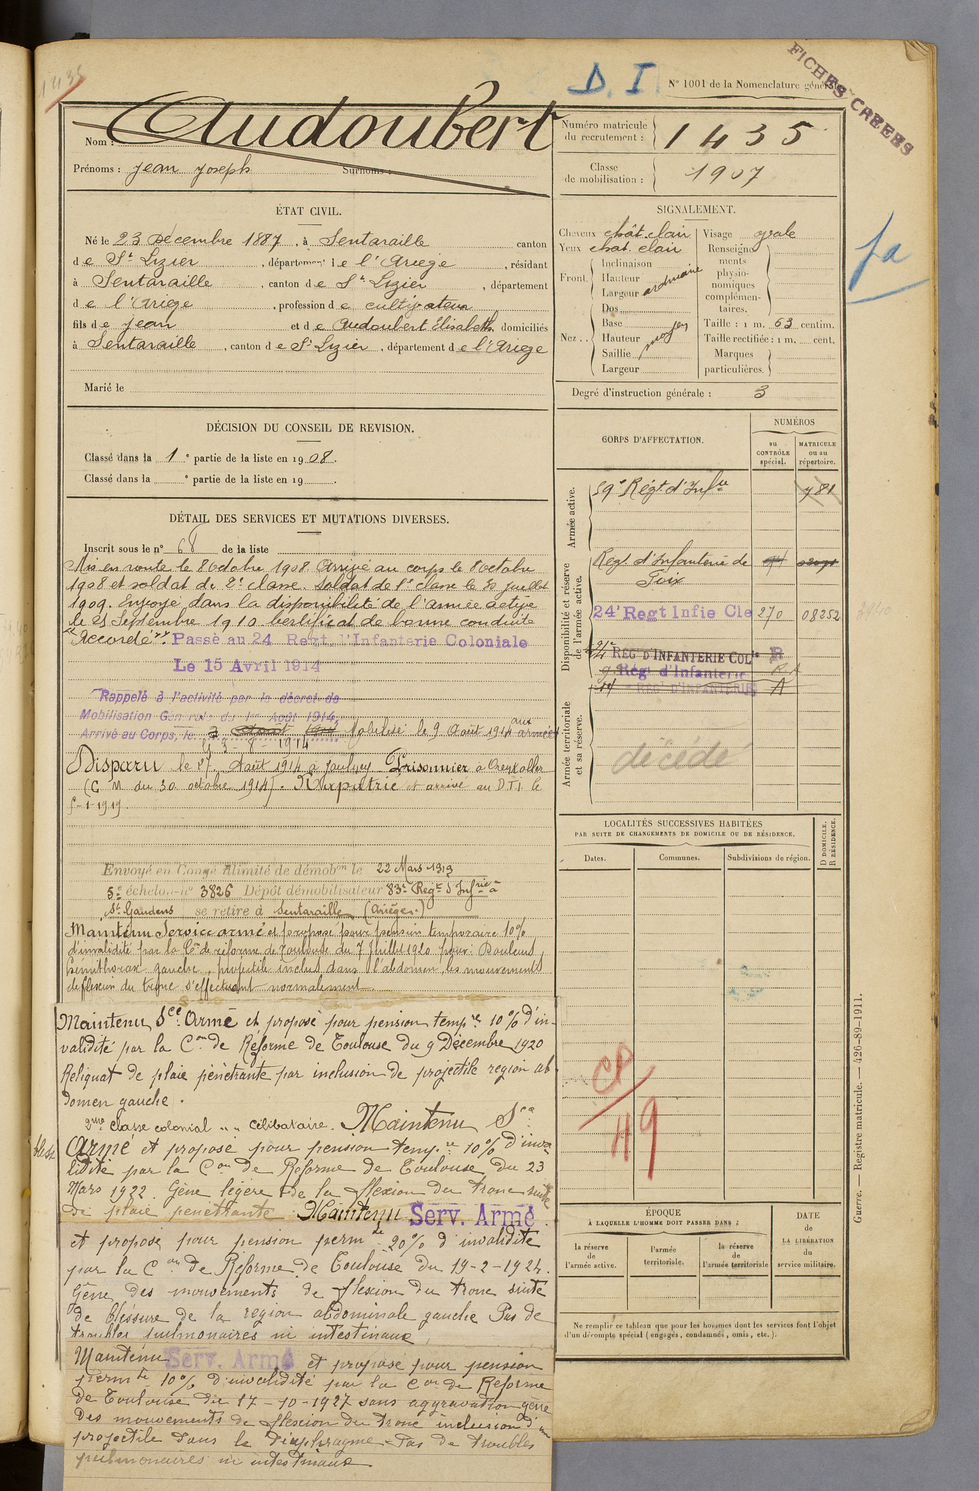 1435
D. I.
N° 1001 de la Nomenclature générale
FICHES CRÉÉES
Nom : Audoubert
Prénoms : Jean Joseph Surnoms :
Numéro matricule du recrutement : 1435
Classe de mobilisation : 1907
ÉTAT CIVIL.
Né le 23 Décembre 1887, à Sentaraille canton
de St Lizier, département de l'Ariège, résidant
à Sentaraille, canton de St Lizier, département
de l'Ariège, profession de cultivateur
fils de Jean et de Audoubert Élisabeth domiciliés
à Sentaraille, canton de St Lizier, département de l'Ariège
Marié le
SIGNALEMENT.
Cheveux chât. clair
Yeux chat. clair
Front.
Inclinaison
Hauteur
Largeur ordinaire
Nez..
Dos
Base
Hauteur moyen
Saillie
Largeur
Visage ovale
Renseignements physionomiques complémentaires.
Taille : 1 m. 63 centim.
Taille rectifiée : 1 m. cent.
Marques particulières.
Degré d'instruction générale : 3
fa
DÉCISION DU CONSEIL DE REVISION.
Classé dans la 1e partie de la liste en 1908.
Classé dans la e partie de la liste en 19
DÉTAIL DES SERVICES ET MUTATIONS DIVERSES.
Inscrit sous le n° 68 de la liste
Mis en route le 8 octobre 1908. Arrivé au corps le 8 octobre
1908 et soldat de 2e classe. Soldat de 1e classe le 10 Juillet
1909. Envoyé dans la disponibilité de l'armée active
le 25 Septembre 1910. Certificat de bonne conduite
"Accordé". Passé au 24 Regt. d'Infanterie Coloniale
Le 15 Avril 1914
Rappelé à l'activité par le décret de
Mobilisation Générale du 1er Août 1914,
Arrivé au Corps, le 3 Août Mobilisé le 9 Août 1914 aux armées
3-8-1914
Disparu le 27 Août 1914 à Prisonnier à
(C M du 30 octobre 1914). Rapatrié et arrivé au D.T.I. le
-1-1919.
Envoyé en Congé illimité de démobon le 22 Mars 1919
5e échelon n° 3826 Dépôt démobilisateur 83e Regt d'Infrie à
St Gaudens se retire à Sentaraille (Ariège.)
Maintenu Service armé et proposé pour pension temporaire 10%
d'invalidité par la Con de réforme de Toulouse du 7 Juillet 1920 pour : Douleurs
hémithorax gauche, projectile inclus dans l'abdomen, les mouvements
de flexion du tronc s'effectuent normalement
Maintenu Sce Armé et proposé pour pension tempre 10% d'in-
validité par la Con de Réforme de Toulouse du 9 Décembre 1920
Reliquat de plaie pénétrante par inclusion de projectile region ab
domen gauche.
classe colonial célibataire. Maintenu Sce
Armé et proposé pour pension tempre 10% d'inva
lidité par la Con de Réforme de Toulouse du 23
Mars 1922. Gêne légère de la flexion du tronc suite
de plaie pénétrante Maintenu Serv. Armé
et proposé pour pension permte 20% d'invalidité
par la Con de Réforme de Toulouse du 19-2-1924.
Gêne des mouvements de flexion du tronc suite
de blessure de la region abdominale gauche Pas de
troubles pulmonaires ni intestinaux,
Maintenu Serv. Armé et proposé pour pension
permte 10% d'invalidité par la Con de Réforme
de Toulouse du 17-10-1927 sans aggravation gêne
des mouvements de flexion du tronc inclusion d'un
projectile dans le diaphragme Pas de troubles
pulmonaires ni intestinaux
CORPS D'AFFECTATION.
NUMÉROS
au CONTRÔLE spécial.
MATRICULE ou au répertoire.
Armée active.
59e Régt. d'Infrie 781
Disponibilité et réserve de l'armée active.
Regt. d'Infanterie de Foix
24e Regt Infie Cle 270 08252
24 REG D'INFANTERIE COLle R
Reg d'Infanterie R A
14 REG D'INFANTERIE A
Armée territoriale et sa réserve.
décédé
LOCALITÉS SUCCESSIVES HABITÉES
PAR SUITE DE CHANGEMENTS DE DOMICILE OU DE RÉSIDENCE.
Dates.
Communes.
Subdivisions de région.
D DOMICILE.
R RÉSIDENCE.
CP
49
ÉPOQUE
À LAQUELLE L'HOMME DOIT PASSER DANS :
la réserve de l'armée active.
l'armée territoriale.
la réserve de l'armée territoriale
DATE
de
LA LIBÉRATION
du
service militaire.
Ne remplir ce tableau que pour les hommes dont les services font l'objet
d'un décompte spécial (engagés, condamnés, omis, etc.).
Guerre. — Registre matricule. — 426-89-1911.